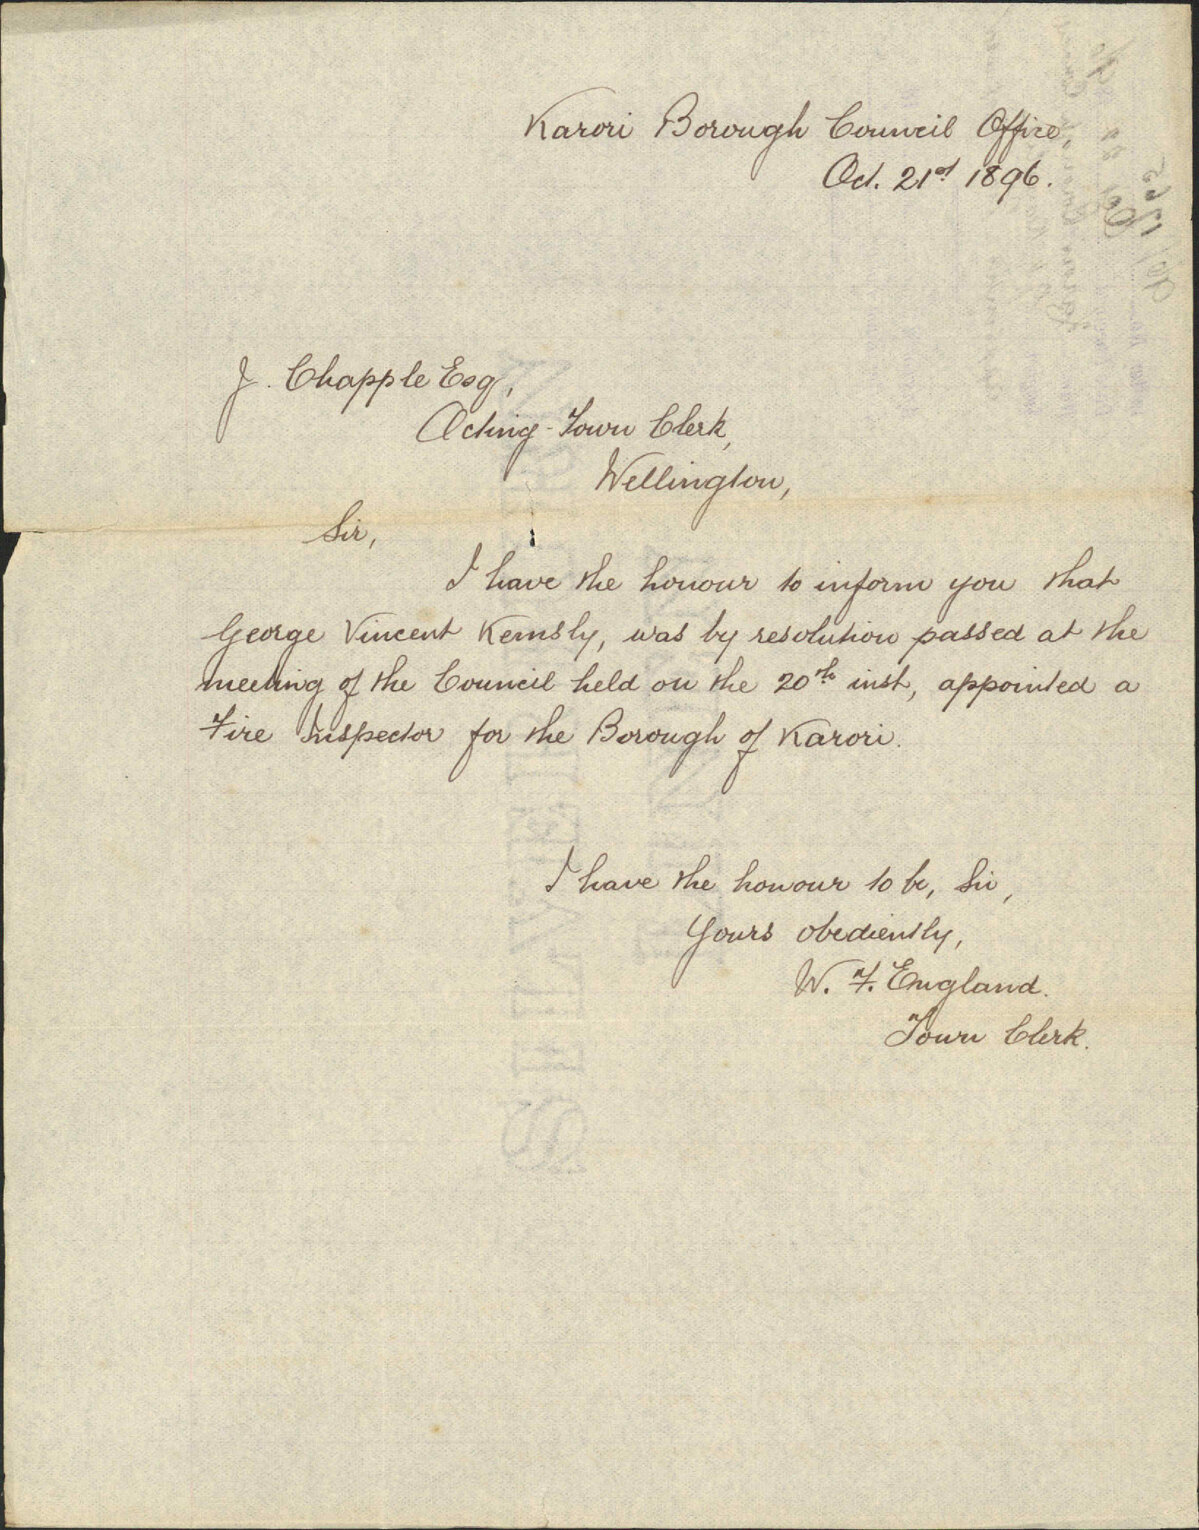 Karori Borough Council Office
Oct. 21st 1896.
J. Chapple Esq,
Acting-Town Clerk,
Wellington,
Sir,
I have the honour to inform you that
George Vincent Kemsly, was by resolution passed at the
meeting of the Council held on the 20th inst, appointed a
Fire Inspector for the Borough of Karori.
I have the honour to be, Sir,
Yours obediently,
W. F. England.
Town Clerk.